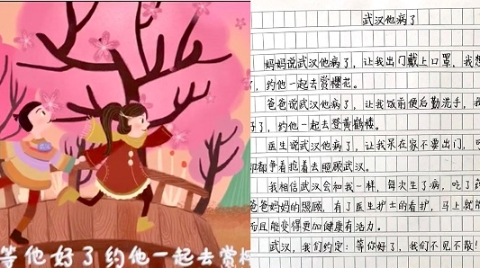 等他好了约他一起去赏
武汉他病了
妈妈说武汉他病了，让我出门戴上口罩，我想
，约他一起去赏樱花。
爸爸说武汉他病了，让我饭前便后勤洗手，我
好了，约他一起去登黄鹤楼。
医生说武汉他病了，让我呆在家不要出门，
却都争着抢着去照顾武汉。
我相信武汉会和我一样，每次生了病，吃了药
爸爸妈妈的照顾，有了医生护士的看护，马上就
而且能变得更加健康有活力。
武汉，我们约定：等你好了，我们不见不散！